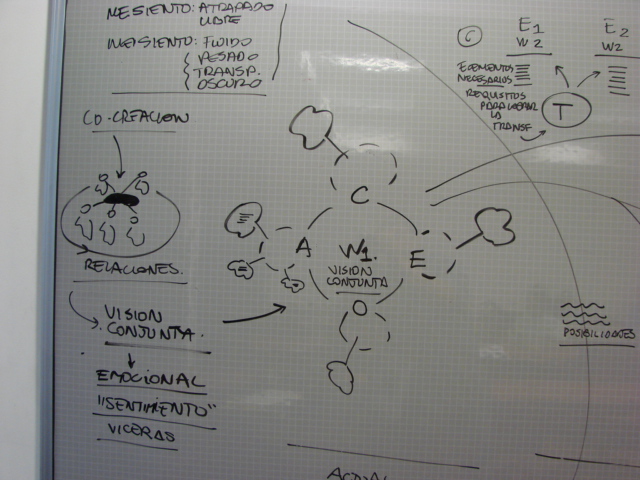 ME SIENTO: ATRAPADO
LIBRE
ME SIENTO: FLUIDO
PESADO
TRANSP.
OSCURO
CO-CREACION
RELACIONES
VISION
CONJUNTA.
EMOCIONAL
"SENTIMIENTO"
VICERAS
C
A
W1.
VISION
CONJUNTA
E
O
C
E1
W2
E2
W2
ELEMENTOS
NECESARIOS
REQUISITOS
PARA LOGRAR
LA
TRANSF
T
POSIBILIDADES